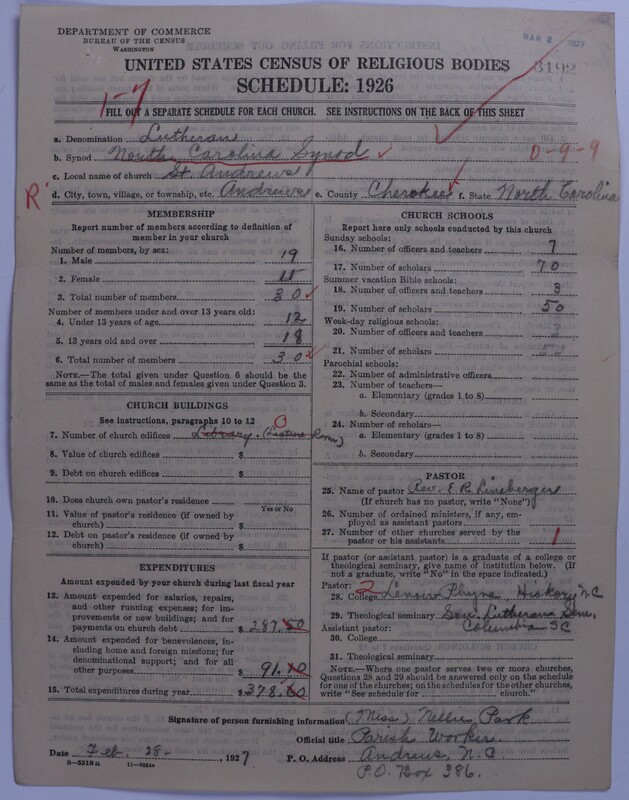 DEPARTMENT OF COMMERCE
BUREAU OF THE CENSUS
WASHINGTON
MAR 2 1927
3192
UNITED STATES CENSUS OF RELIGIOUS BODIES
SCHEDULE: 1926
1-7
FILL OUT A SEPARATE SCHEDULE FOR EACH CHURCH. SEE INSTRUCTIONS ON THE BACK OF THIS SHEET
a. Denomination Lutheran
b. Synod North Carolina Synod
0-9-9
c. Local name of church St. Andrews
R
d. City, town, village, or township, etc. Andrews e. County Cherokee f. State North Carolina
MEMBERSHIP
Report number of members according to definition of member in your church
Number of members, by sex:
1. Male 19
2. Female 11
3. Total number of members 30
Number of members under and over 13 years old:
4. Under 13 years of age 12
5. 13 years old and over 18
6. Total number of members 30
NOTE.—The total given under Question 6 should be
same as the total of males and females given under Question 3.
CHURCH BUILDINGS
See instructions, paragraphs 10 to 12
0
7. Number of church edifices Library. (Lecture Room)
8. Value of church edifices $
9. Debt on church edifices $
10. Does church own pastor's residence
Yes or No
11. Value of pastor's residence (if owned by
church) $
12. Debt on pastor's residence (if owned by
church) $
EXPENDITURES
Amount expended by your church during last fiscal year
13. Amount expended for salaries, repairs,
and other running expenses; for im-
provements or new buildings; and for
payments on church debt $ 287.50
14. Amount expended for benevolences, in-
cluding home and foreign missions; for
denominational support; and for all
other purposes 91.10
15. Total expenditures during year $ 378.60
CHURCH SCHOOLS
Report here only schools conducted by this church
Sunday schools:
16. Number of officers and teachers 7
17. Number of scholars 70
Summer vacation Bible schools:
18. Number of officers and teachers 3
19. Number of scholars 50
Week-day religious schools:
20. Number of officers and teachers
21. Number of scholars
Parochial schools:
22. Number of administrative officers
23. Number of teachers—
a. Elementary (grades 1 to 8)
b. Secondary
24. Number of scholars—
a. Elementary (grades 1 to 8)
b. Secondary
PASTOR
25. Name of pastor Rev. E. R. Lineberger
(If church has no pastor, write "None")
26. Number of ordained ministers, if any, em-
ployed as assistant pastors
27. Number of other churches served by the
pastor or his assistants 1
If pastor (or assistant pastor) is a graduate of a college or
theological seminary, give name of institution below. (If
not a graduate, write "No" in the space indicated.)
Pastor: 2
28. College Lenoir Rhyne, Hickory N.C
29. Theological seminary Sou. Lutheran Sem.
Assistant pastor: Columbia SC
30. College
31. Theological seminary
NOTE.—Where one pastor serves two or more churches,
Questions 28 and 29 should be answered only on the schedule
for one of the churches; on the schedules for the other churches,
write "See schedule for church."
Signature of person furnishing information (Miss) Nellie Park
Official title Parish Worker
Date Feb. 28- , 1927 P. O. Address Andrews, N.C
P.O. Box 386.